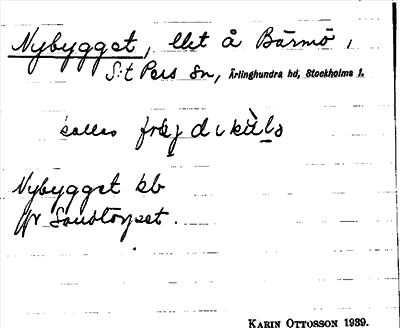 Nybygget, llet å Bärmö,
S:t Pers sn, Ärlinghundra hd, Stockholms l.
kallas
Nybygget kb
jfr Sandtorpet.
KARIN OTTOSSON 1939.